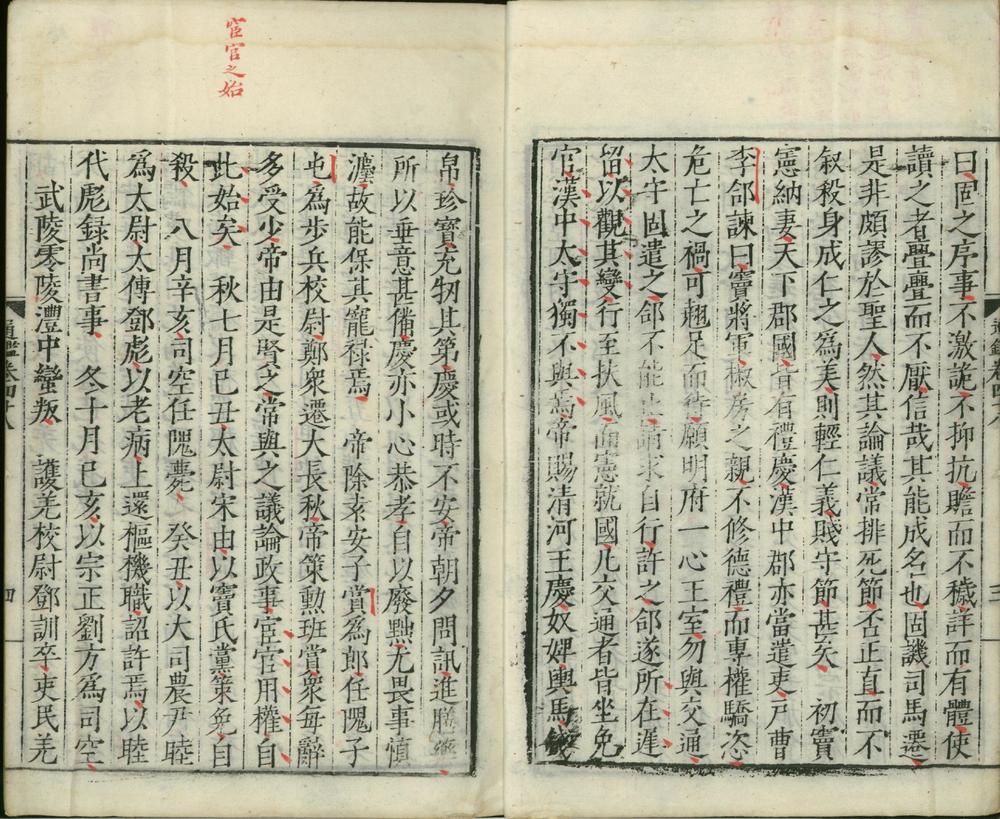 曰固之序事不激詭不抑抗贍而不穢詳而有體使
讀之者亹亹而不厭信哉其能成名也固譏司馬遷
是非頗謬於聖人然其論議常排死節否正直而不
叙殺身成仁之為美則輕仁義賤守節甚矣　初竇
憲納妻天下郡國皆有禮慶漢中郡亦當遣吏戶曹
李郃諫曰竇將軍椒房之親不修德禮而專權驕恣
危亡之禍可翹足而待願明府一心王室勿與交通
太守固遣之郃不能止請求自行許之郃遂所在遲
留以觀其變行至扶風而憲就國凡交通者皆坐免
官漢中太守獨不與焉帝賜清河王慶奴婢輿馬錢
帛珍寶充牣其第慶或時不安帝朝夕問訊進膳藥
所以垂意甚備慶亦小心恭孝自以廢黜尤畏事慎
灋故能保其寵祿焉　帝除袁安子賞為郎任隗子
屯為步兵校尉鄭衆遷大長秋帝策勲班賞衆每辭
多受少帝由是賢之常與之議論政事宦官用權自
此始矣　秋七月己丑太尉宋由以竇氏黨策免自
殺　八月辛亥司空任隗薨　癸丑以大司農尹睦
為太尉太傅鄧彪以老病上還樞機職詔許焉以睦
代彪録尚書事　冬十月己亥以宗正劉方為司空
武陵零陵澧中蠻叛　護羌校尉鄧訓卒吏民羌
宦官之始
通鑑卷四十八
四
通鑑卷四十八
三